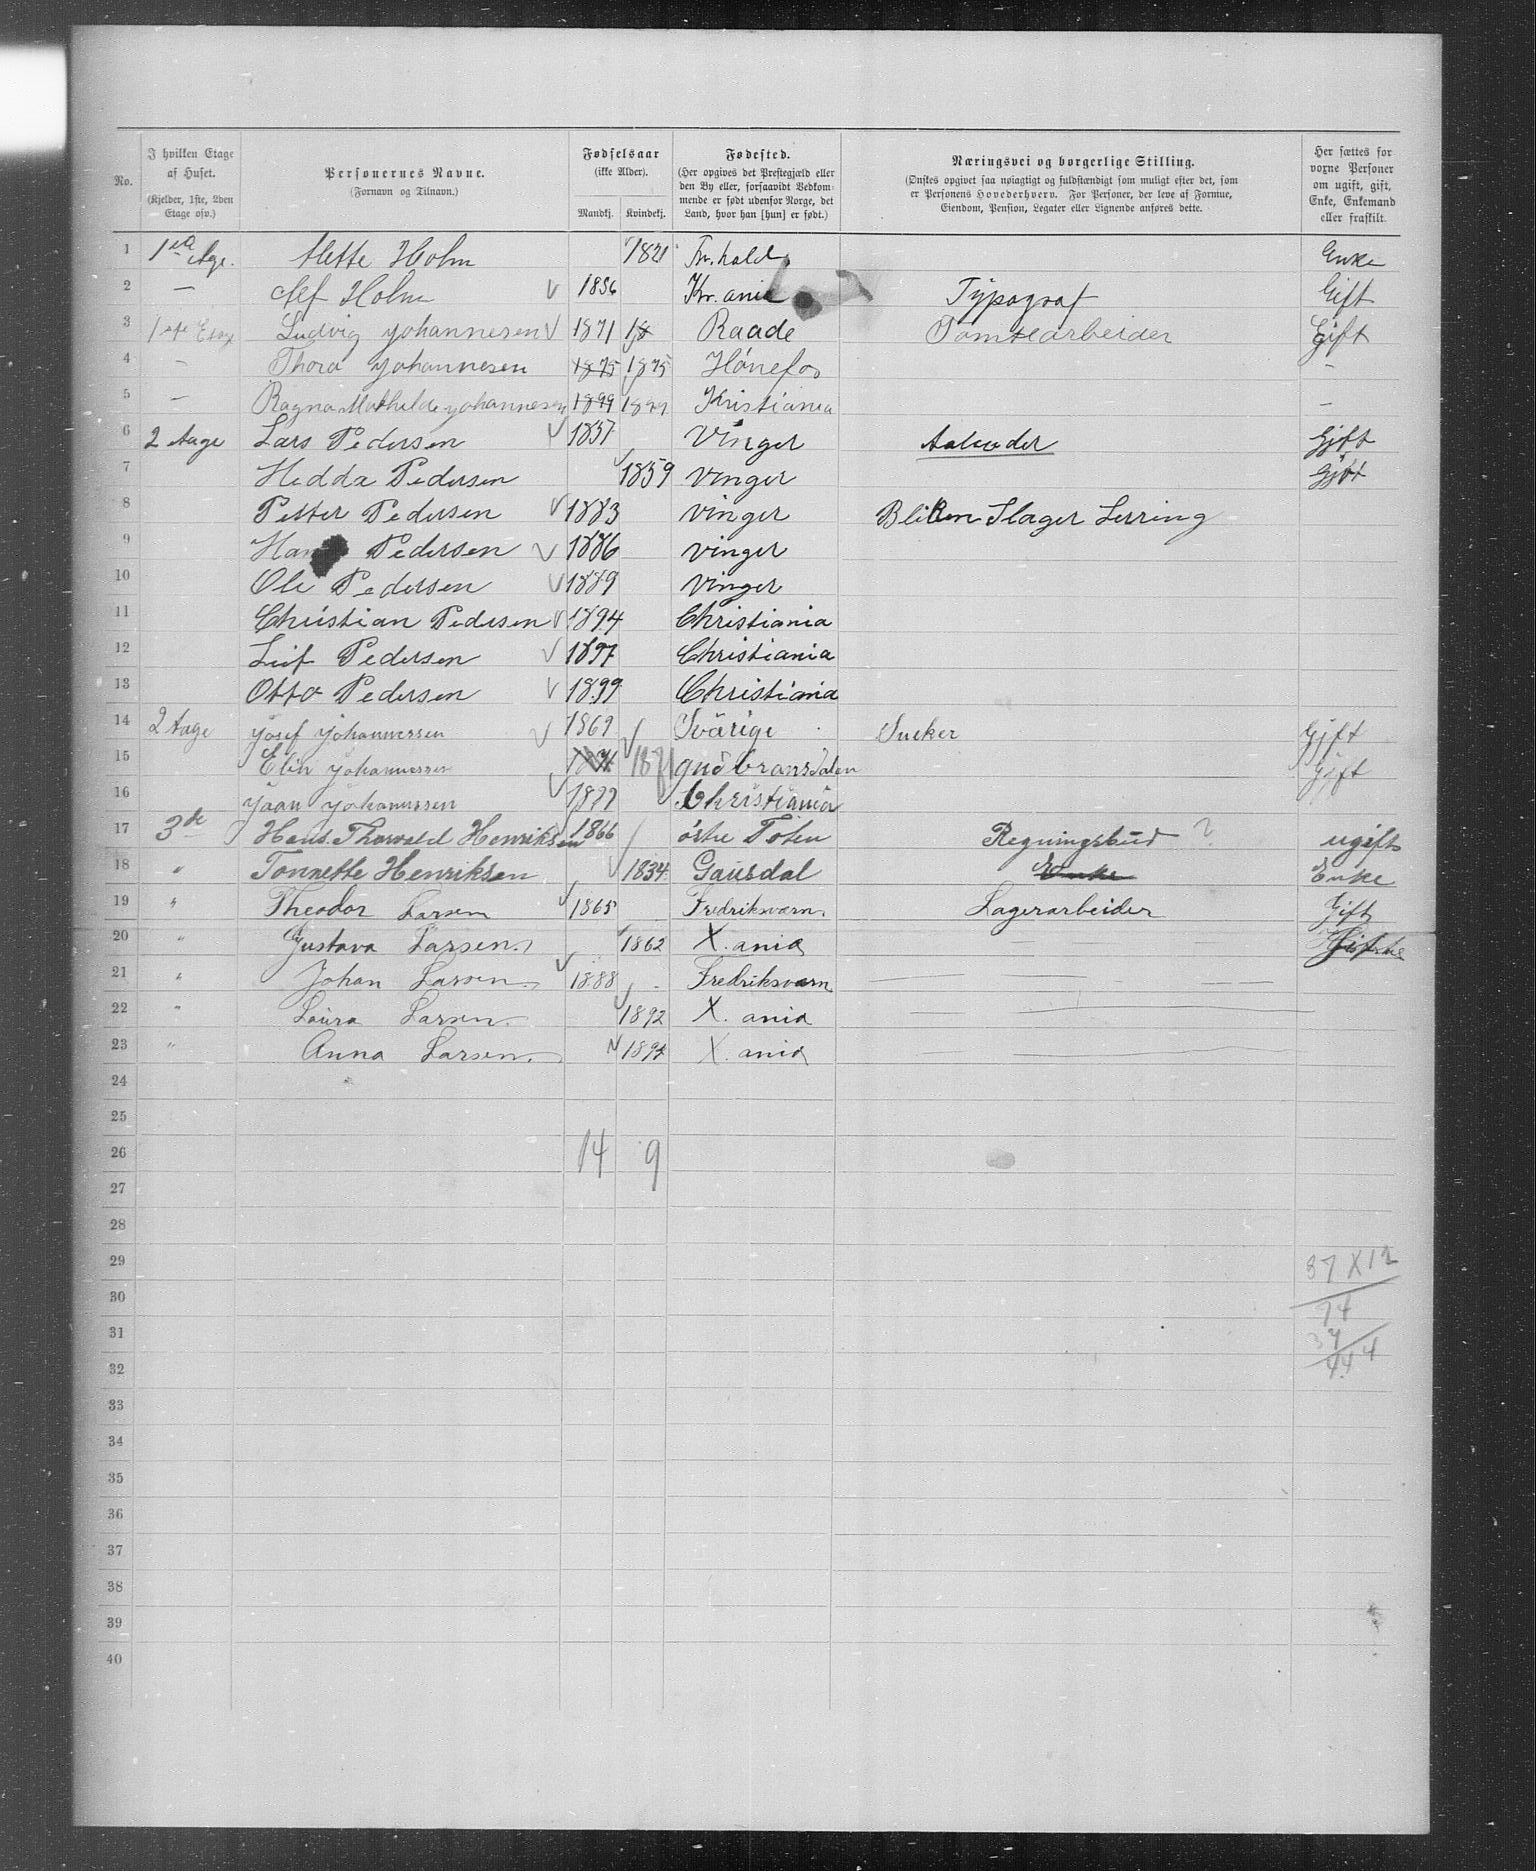 No. | I hvilken Etage af Huset. (Kjelder, 1ste, 2den Etage osv.) | Personernes Navne. (Fornavn og Tilnavn.) | Fødselsaar (ikke Alder). Mandkj. | Kvindekj. | Fødested. (Her opgives det Prestegjæld eller den By eller, forsaavidt Vedkommende er født udenfor Norge, det Land, hvor han [hun] er født.) | Næringsvei og borgerlige Stilling. (Ønskes opgivet saa nøiagtigt og fuldstændigt som muligt efter det, som er Personens Hovederhverv. For Personer, der leve af Formue, Eiendom, Pension, Legater eller Lignende anføres dette.) | Her sættes for voxne Personer om ugift, gift, Enke, Enkemand eller fraskilt.
1 | Mette Holm | 1821 | Fr.hald | Enke
2 | — | Holm | 1856 | Kr.ania | Typograf | Gift
3 | 1ste Etag | Ludvig Johannesen | 1871 | 18 | Raade | Tomtearbeider | Gift
4 | - | Thora Johannesen | 1875 | 1875 | Hónefos | -
5 | - | Ragna Mathilde Johannesen | 1899 | 1899 | Kristiania | -
6 | 2 Aage | Lars Pedersen | 1857 | Vinger | Gjift
7 | Hedda Pedersen | 1859 | Vinger | Gjift
8 | Petter Pedersen | 1883 | Vinger | Blikken Slager Lerring
9 | Pedersen | 1886 | Vinger
10 | Ole Pedersen | 1889 | Vinger
11 | Christian Pedersen | 1894 | Christiania
12 | Leif Pedersen | 1897 | Christiania
13 | Otto Pedersen | 1899 | Christiania
14 | 2 Aage | Josef Johannessen | 1869 | Svärige | Sneker | Gjft
15 | Elin Johannessen | 1871 | gudbransdalen | Gjft
16 | Johannessen | 1899 | Christiania
17 | 3de | Hans Thorvald Henriksen | 1866 | östre Toten | Regningsbud ? | ugift
18 | " | Tonnette Henriksen | 1834 | Gausdal | Enke | Enke
19 | " | Theodor Larsen | 1865 | Fredriksværn. | Lagerarbeider | Gift
20 | " | Gustava Larsen. | 1862 | X. ania | Gift
21 | " | Johan Larsen. | 1888 | Fredriksværn
22 | " | Laura Larsen. | 1892 | X. ania
23 | " | Anna Larsen. | X. ania
24
25
26 | 14 | 9
27
28
29 | 37 X 12
30 | 74
31 | 37
32 | 444
33
34
35
36
37
38
39
40